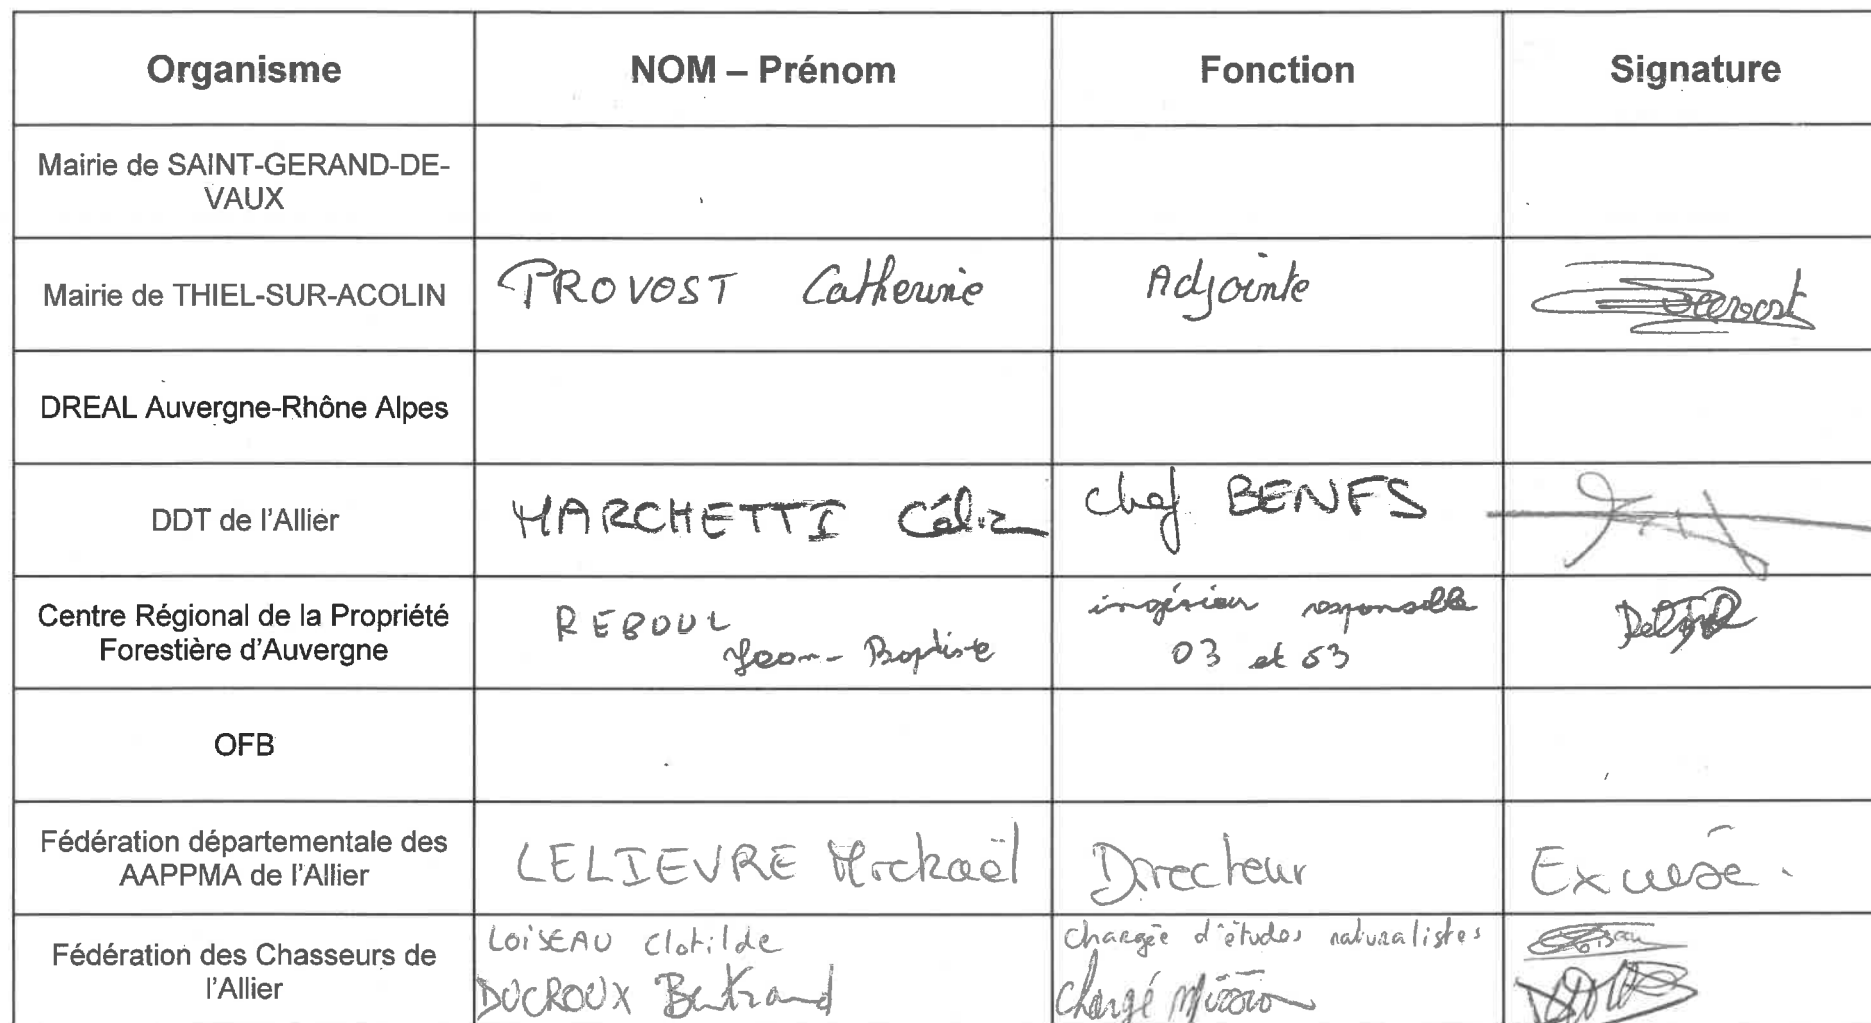 Organisme NOM – Prénom Fonction Signature
Mairie de SAINT-GERAND-DE-
VAUX
Mairie de THIEL-SUR-ACOLIN PROVOST Catherine Adjointe Provost
DREAL Auvergne-Rhône Alpes
DDT de l'Allier MARCHETTI Célia chef BENFS
Centre Régional de la Propriété
Forestière d'Auvergne
REBOUL
Jean-Baptiste
ingénieur responsable
03 et 63
OFB
Fédération départementale des
AAPPMA de l'Allier
LELIEVRE Mickaël Directeur Excusé.
Fédération des Chasseurs de
l'Allier
LOISEAU Clotilde
DUCROUX Bertrand
Chargée d'études naturalistes
Chargé Mission